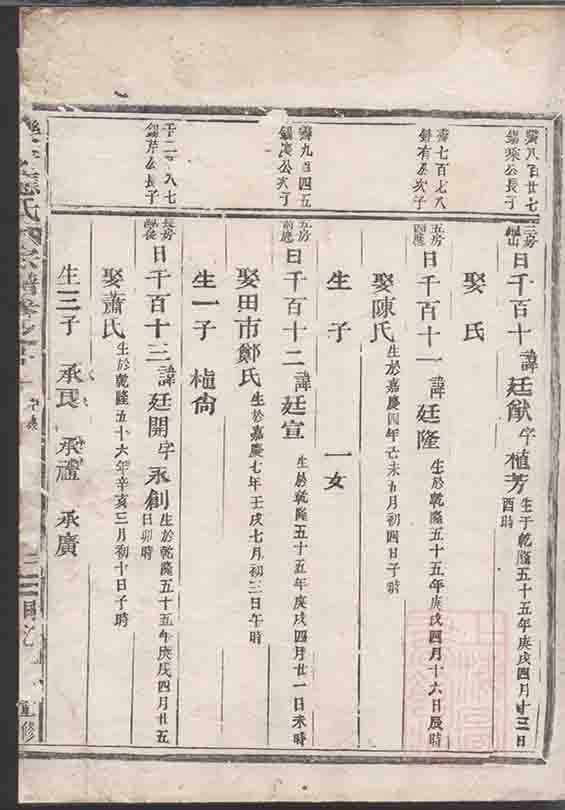 霽八百廿七
錫榮公長子
三房
日千百十 諱廷猷 字植芳 生于乾隆五十五年庚戌四月十三日
酉時
娶 氏
霽七百七八
錫有公次子
五房
日千百十一 諱廷隆 生於乾隆五十五年庚戌四月十六日辰時
娶陳氏 生於嘉慶四年己未五月初四日子時
生 子 一女
霽九百四五
錫慶公次子
五房
前應
日千百十二 諱廷宣 生於乾隆五十五年庚戌四月廿一日未時
娶田市鄭氏 生於嘉慶七年壬戌七月初三日午時
生一子 植尙
錫芹公長子
長房
日千百十三 諱廷開 字永創 生於乾隆五十五年庚戌四月廿五
日卯時
娶蕭氏 生於乾隆五十六年辛亥三月初十日子時
生三子 承民 承禮 承廣
氏宗譜